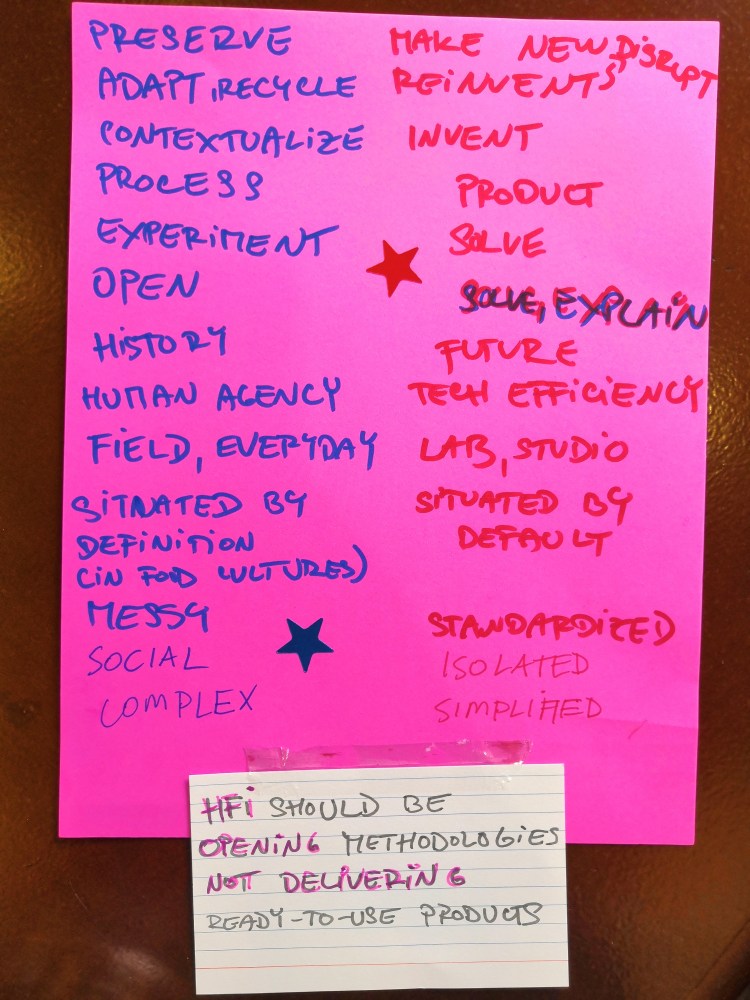 PRESERVE
ADAPT, RECYCLE
CONTEXTUALIZE
PROCESS
EXPERIMENT
OPEN
HISTORY
HUMAN AGENCY
FIELD, EVERYDAY
SITUATED BY
DEFINITION
(IN FOOD CULTURES)
MESSY
SOCIAL
COMPLEX
MAKE NEW, DISRUPT
REINVENTS
INVENT
PRODUCT
SOLVE
SOLVE, EXPLAIN
FUTURE
TECH EFFICIENCY
LAB, STUDIO
SITUATED BY
DEFAULT
STANDARDIZED
ISOLATED
SIMPLIFIED
HFI SHOULD BE
OPENING METHODOLOGIES
NOT DELIVERING
READY-TO-USE PRODUCTS